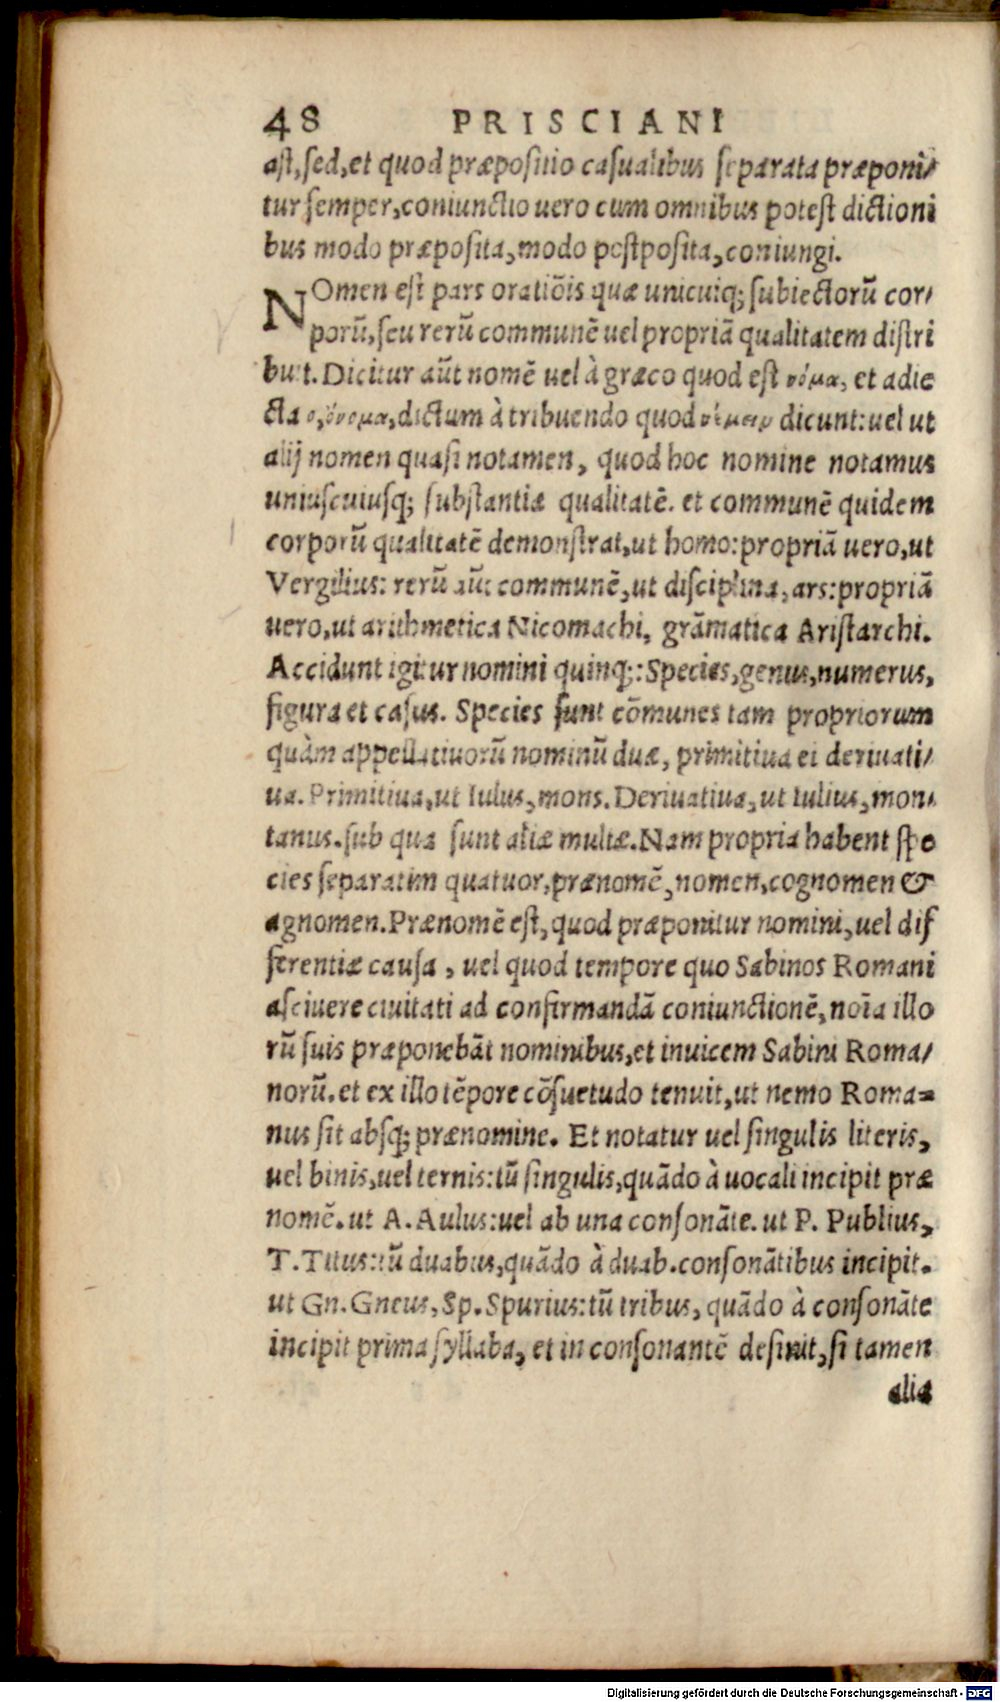 48 PRISCIANI
ast, sed, et quod præpositio casualibus separata præponi/
tur semper, coniunctio uero cum omnibus potest dictioni
bus modo præposita, modo postposita, coniungi.
NOmen est pars oratiōis quæ unicuiq; subiectorū cor/
porū, seu rerū communē uel propriā qualitatem distri
buit. Dicitur aūt nomē uel à græco quod est νόμα, et adie
cta ο, ὄνομα, dictum à tribuendo quod νέμειν dicunt: uel ut
alij nomen quasi notamen, quod hoc nomine notamus
uniuscuiusq; substantiæ qualitatē. et communē quidem
corporū qualitatē demonstrat, ut homo: propriā uero, ut
Vergilius: rerū aūt communē, ut disciplina, ars: propriā
uero, ut arithmetica Nicomachi, grāmatica Aristarchi.
Accidunt igitur nomini quinq;: Species, genus, numerus,
figura et casus. Species sunt cōmunes tam propriorum
quàm appellatiuorū nominū duæ, primitiua et deriuati/
ua. Primitiua, ut Iulus, mons. Deriuatiua, ut Iulius, mon/
tanus. sub qua sunt aliæ multæ. Nam propria habent spe
cies separatim quatuor, prænomē, nomen, cognomen &
agnomen. Prænomē est, quod præponitur nomini, uel dif
ferentiæ causa, uel quod tempore quo Sabinos Romani
asciuere ciuitati ad confirmandā coniunctionē, noīa illo
rū suis præponebāt nominibus, et inuicem Sabini Roma/
norū. et ex illo tēpore cōsuetudo tenuit, ut nemo Roma=
nus sit absq; prænomine. Et notatur uel singulis literis,
uel binis, uel ternis: tū singulis, quādo à uocali incipit præ
nomē. ut A. Aulus: uel ab una consonāte. ut P. Publius,
T. Titus: tū duabus, quādo à duab. consonātibus incipit.
ut Gn. Gneus, Sp. Spurius: tū tribus, quādo à consonāte
incipit prima syllaba, et in consonantē desinit, si tamen
alia
Digitalisierung gefördert durch die Deutsche Forschungsgemeinschaft - DFG